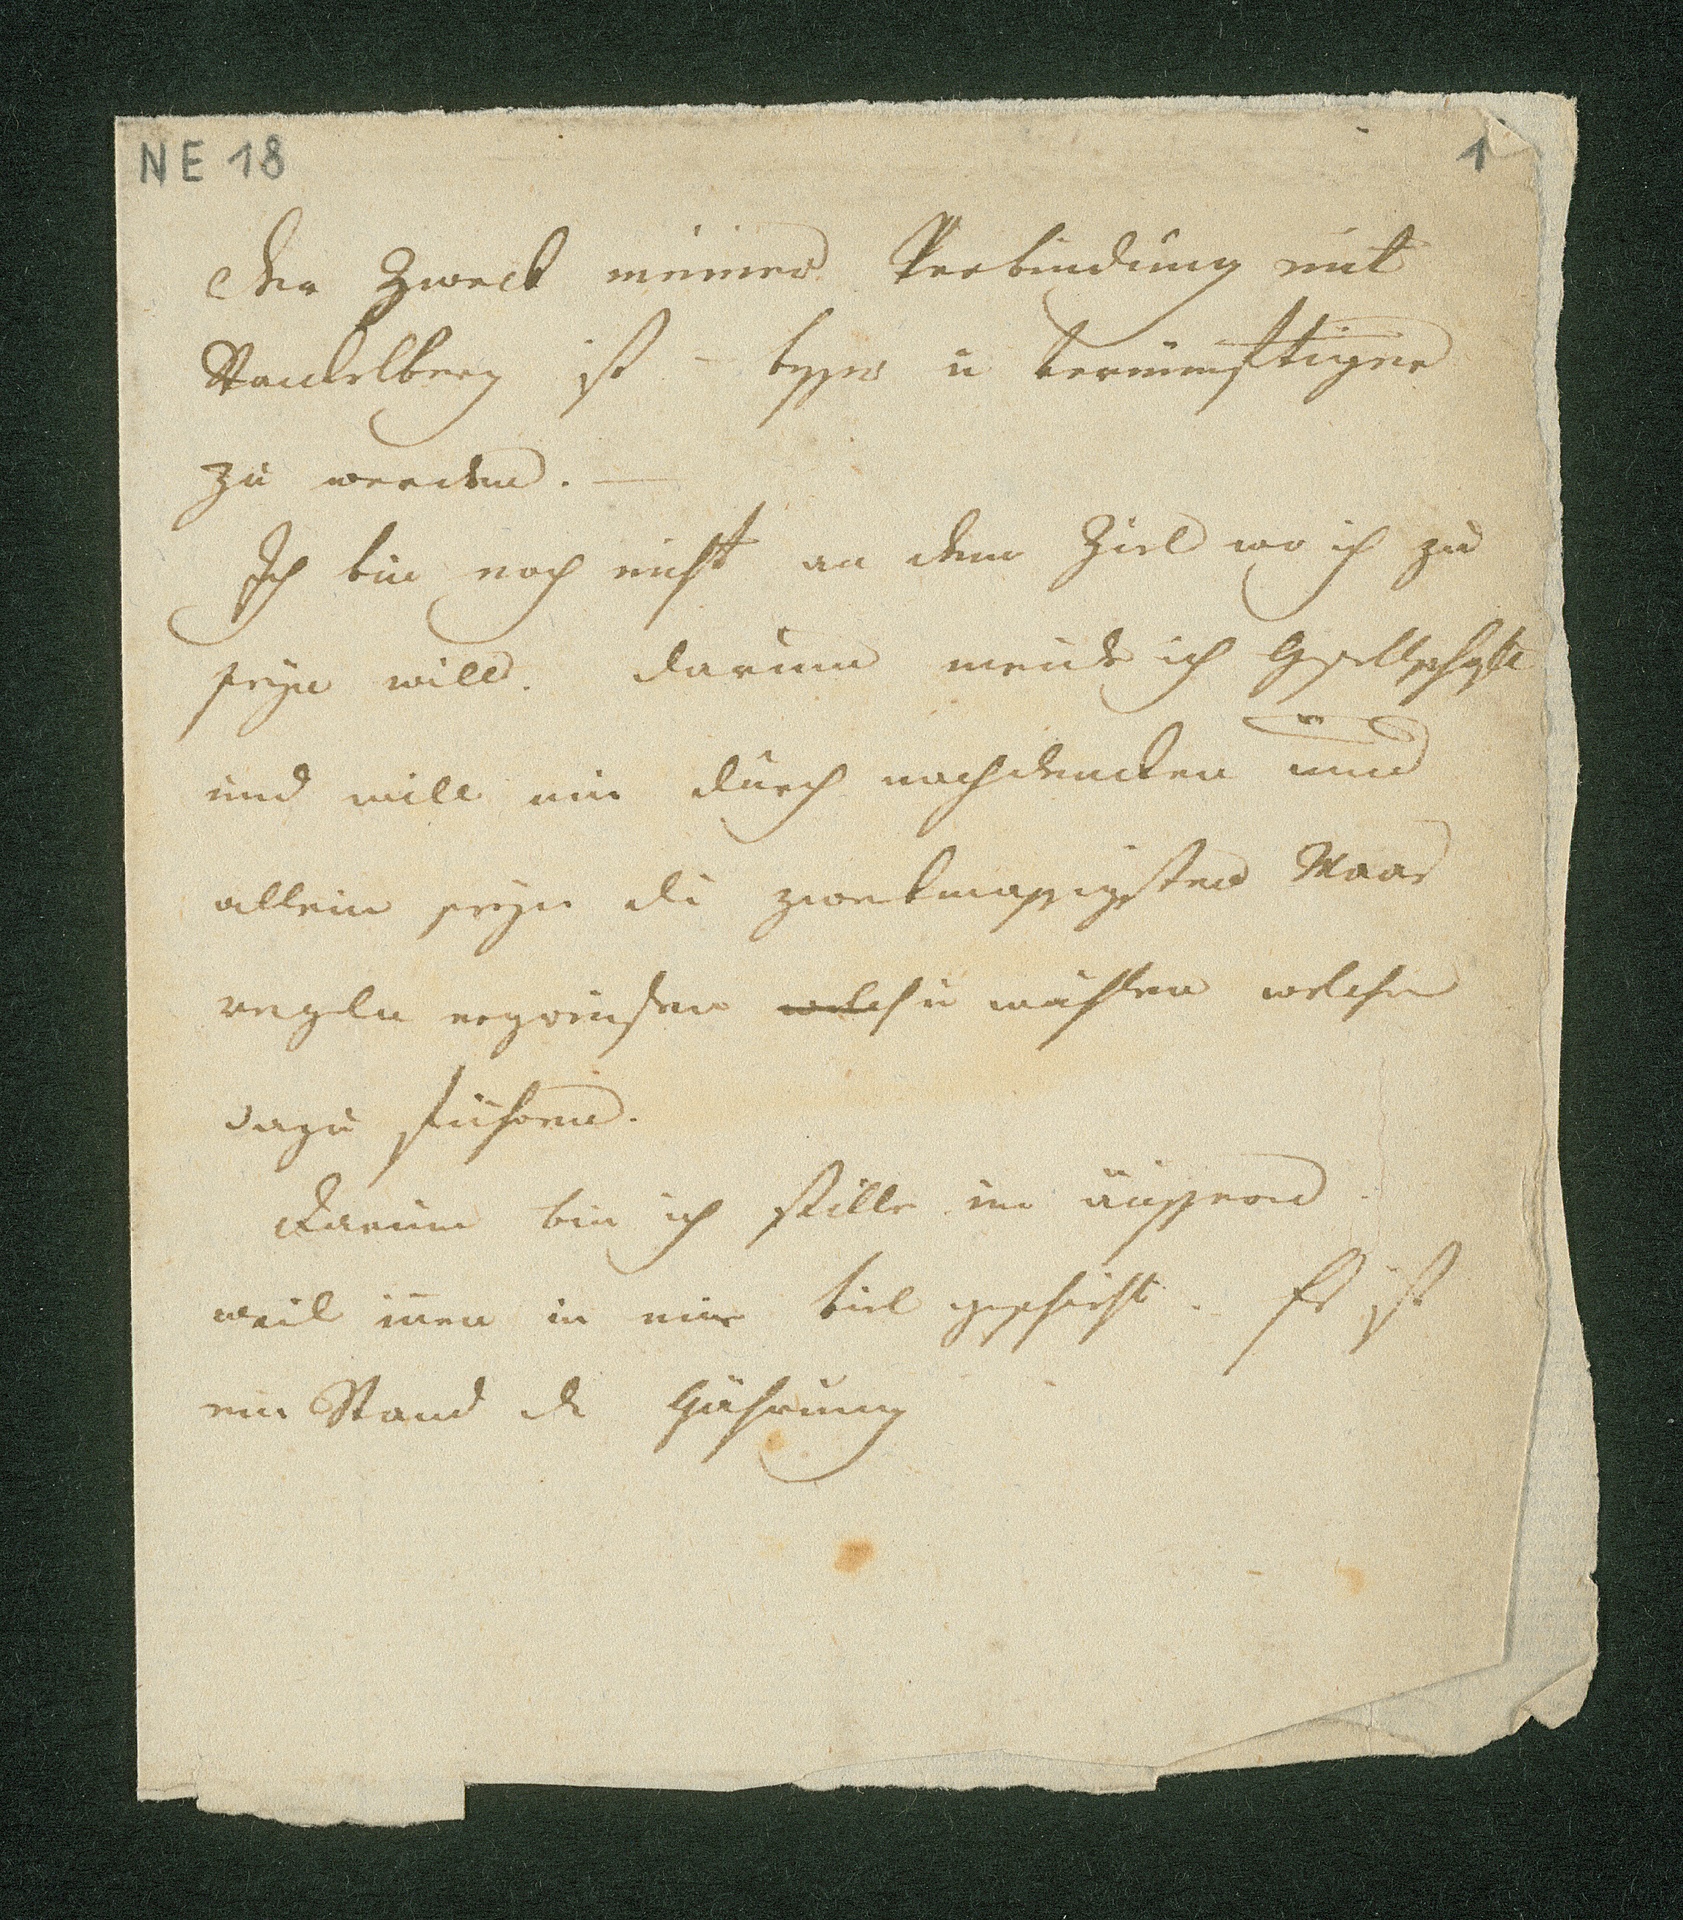 NE 18
1
Der Zweck meiner Verbindung mit
Stackelberg ist – besser u vernünftiger
zu werden. —
Ich bin noch nicht an dem Ziel wo ich zu
seyn will. darum meide ich Gesellschaft
und will mir durch nachdencken und
allein seyn die zwekmässigsten Maas
regeln ergreifen wählen welche
dazu führen.
Darum bin ich stille im äussern
weil innen in mir viel geschieht. Es ist
ein Stand der Gährung